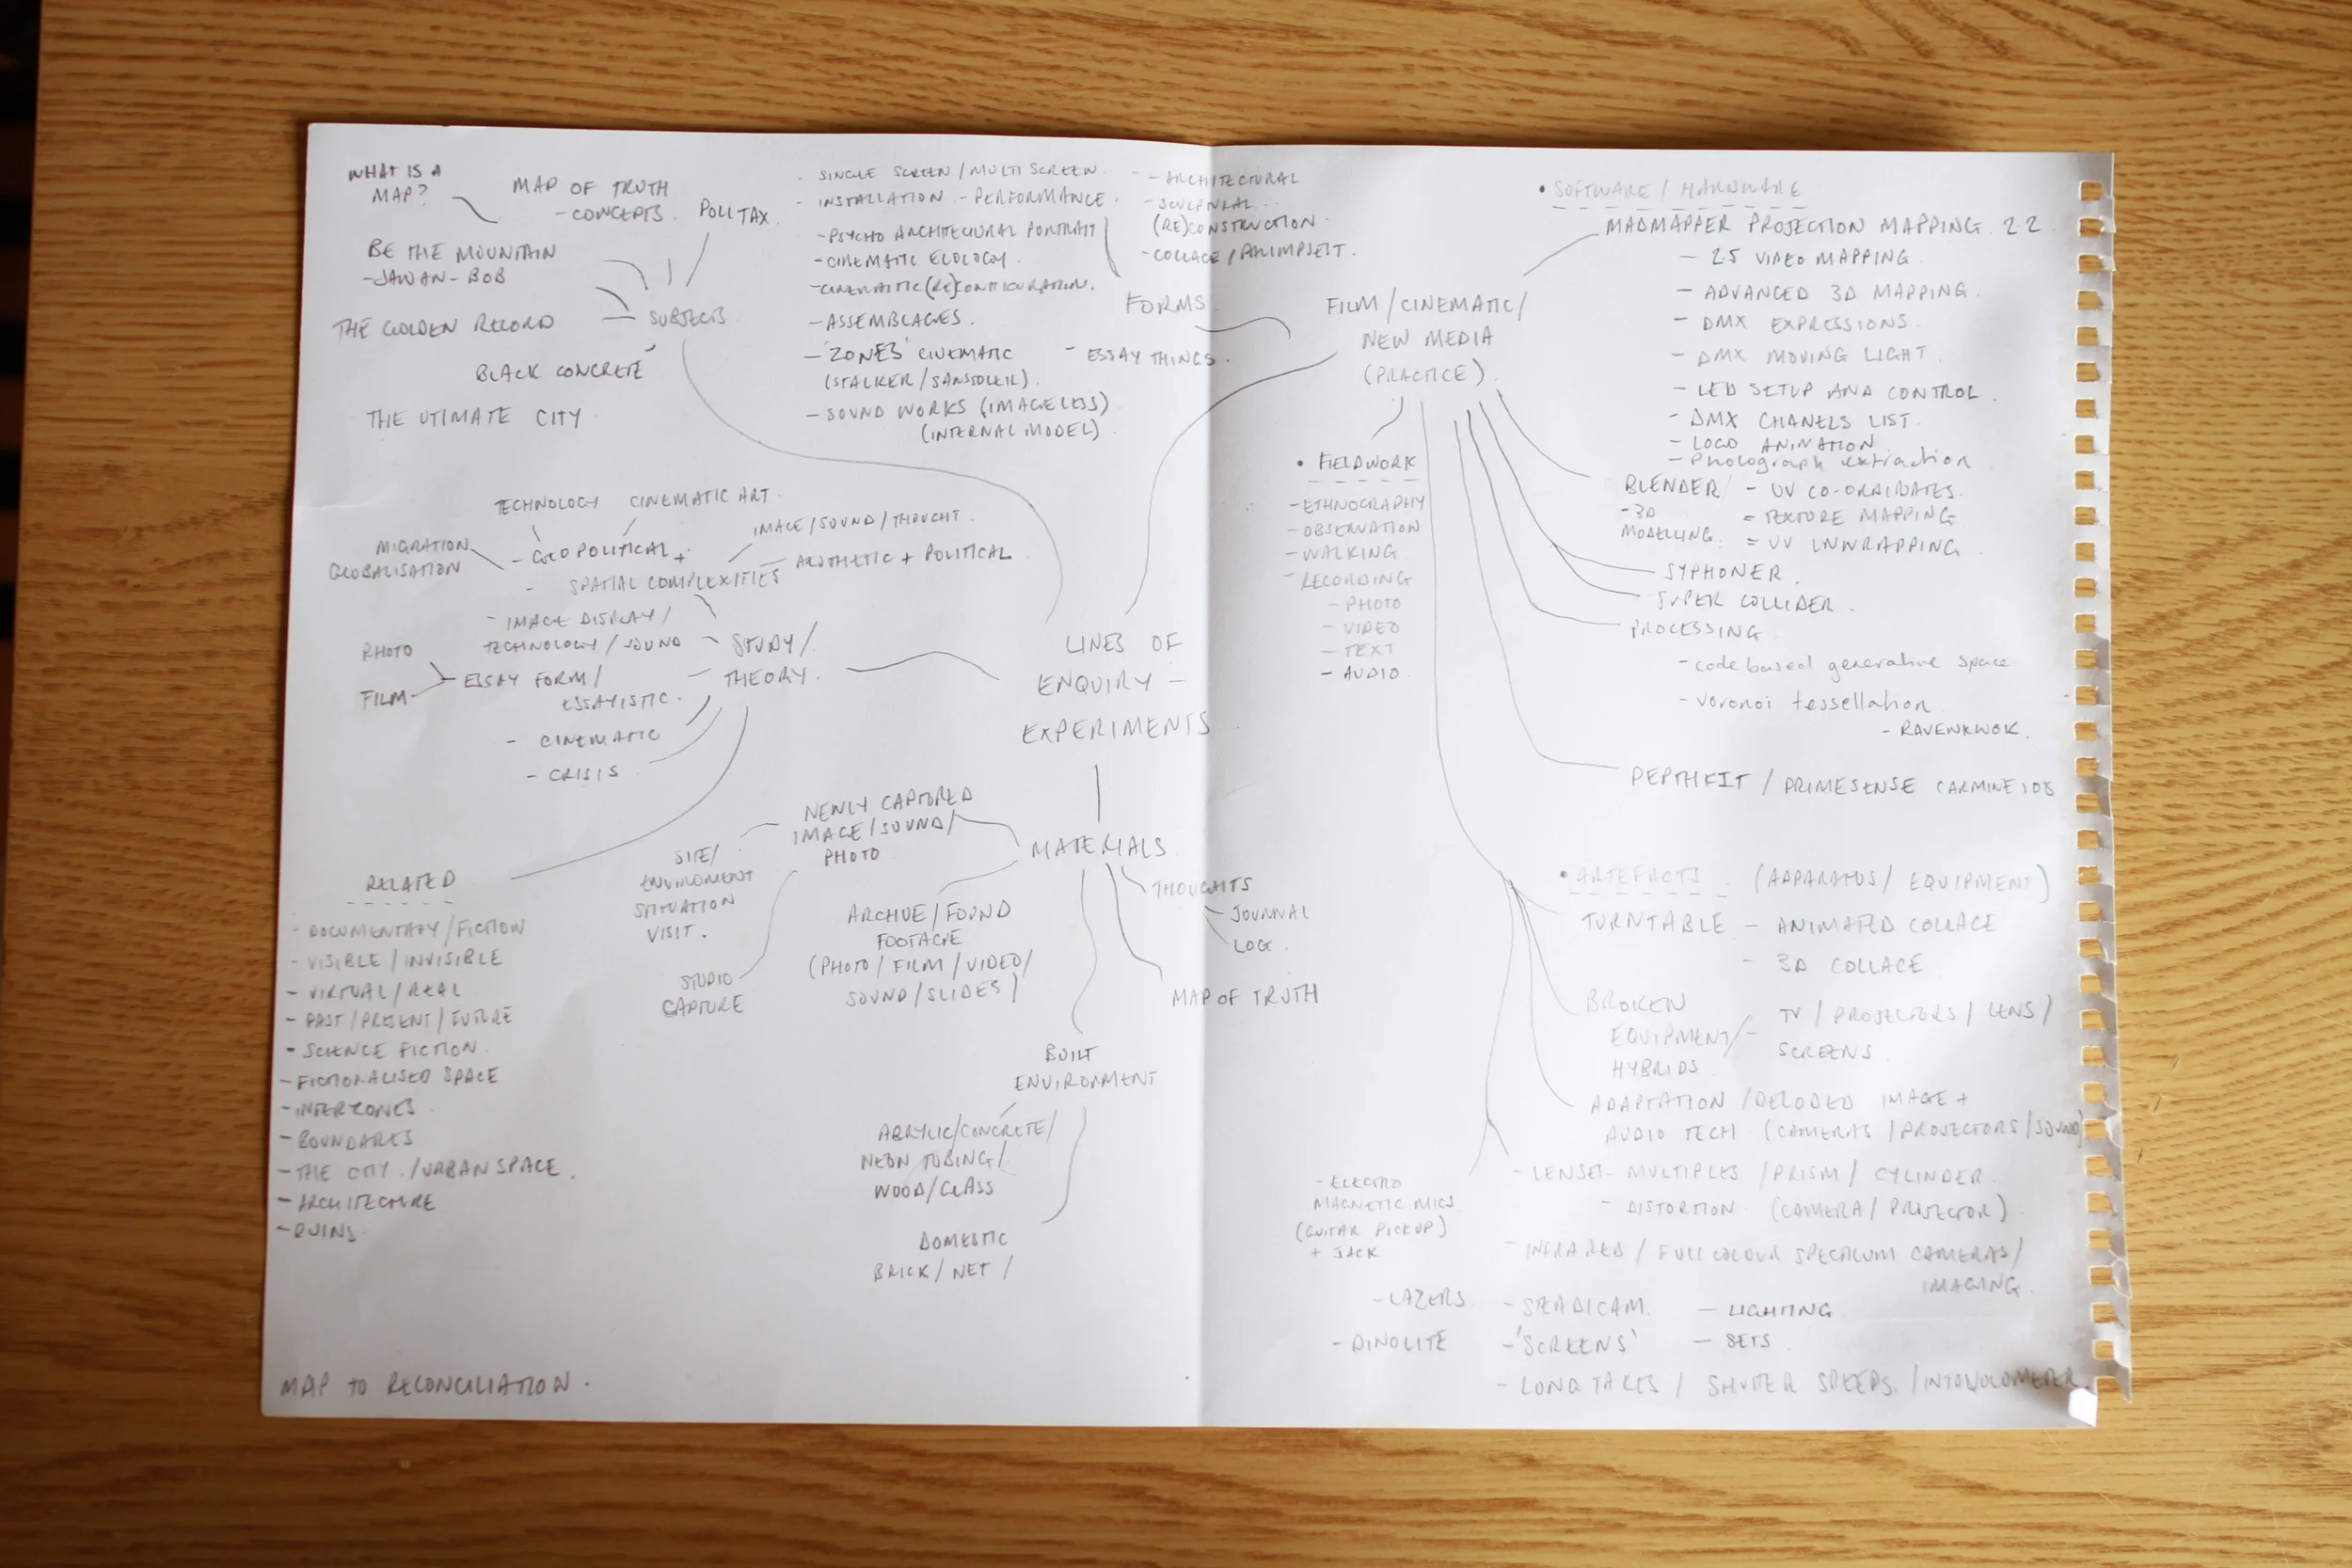 WHAT IS A
MAP?
MAP OF TRUTH
- CONCEPTS.
POLL TAX.
BE THE MOUNTAIN
- JAWAN - BOB
THE GOLDEN RECORD
SUBJECTS
BLACK CONCRETE
THE UTIMATE CITY
- SINGLE SCREEN / MULTI SCREEN
- INSTALLATION - PERFORMANCE.
- PSYCHO ARCHITECTURAL PORTRAIT
- CINEMATIC ECOLOGY.
- CINEMATIC (RE)CONFIGURATION.
- ASSEMBLAGES.
- 'ZONES' CINEMATIC
(STALKER / SANSOLEIL).
- SOUND WORKS (IMAGELESS)
(INTERNAL MODEL)
- ARCHITECTURAL
- SCULPTURAL
(RE)CONSTRUCTION
- COLLAGE / PALIMPSEST.
FORMS
- ESSAY THINGS.
FILM / CINEMATIC /
NEW MEDIA
(PRACTICE)
• SOFTWARE / HARDWARE
MADMAPPER PROJECTION MAPPING 2.2
- 2.5 VIDEO MAPPING
- ADVANCED 3D MAPPING.
- DMX EXPRESSIONS.
- DMX MOVING LIGHT.
- LED SETUP AND CONTROL.
- DMX CHANELS LIST.
- LOGO ANIMATION
- Photograph extraction
BLENDER / - UV CO-ORDINATES.
- 3D = TEXTURE MAPPING
MODELLING. = UV UNWRAPPING
SYPHONER.
SUPER COLLIDER.
PROCESSING
- code based generative space
- voronoi tessellation
- RAVENKWOK.
DEPTHKIT / PRIMESENSE CARMINE 108
• FIELDWORK
- ETHNOGRAPHY
- OBSERVATION
- WALKING
- RECORDING
- PHOTO
- VIDEO
- TEXT
- AUDIO
TECHNOLOGY CINEMATIC ART.
MIGRATION
GLOBALISATION
- GEOPOLITICAL +
- SPATIAL COMPLEXITIES
IMAGE / SOUND / THOUGHT.
AESTHETIC + POLITICAL
- IMAGE DISPLAY /
TECHNOLOGY / SOUND
PHOTO
FILM
ESSAY FORM /
ESSAYISTIC.
- CINEMATIC
- CRISIS
STUDY /
THEORY.
LINES OF
ENQUIRY -
EXPERIMENTS
RELATED
- DOCUMENTARY / FICTION
- VISIBLE / INVISIBLE
- VIRTUAL / REAL
- PAST / PRESENT / FUTURE
- SCIENCE FICTION
- FICTIONALISED SPACE
- INTERZONES
- BOUNDARIES
- THE CITY / URBAN SPACE.
- ARCHITECTURE
- RUINS
NEWLY CAPTURED
IMAGE / SOUND /
PHOTO
SITE /
ENVIROMENT
SITUATION
VISIT.
STUDIO
CAPTURE
MATERIALS
THOUGHTS
JOURNAL
LOG.
MAP OF TRUTH
ARCHIVE / FOUND
FOOTAGE
(PHOTO / FILM / VIDEO /
SOUND / SLIDES)
BUILT
ENVIRONMENT
ACRYLIC / CONCRETE /
NEON TUBING /
WOOD / GLASS
DOMESTIC
BRICK / NET /
• ARTEFACTS. (APPARATUS / EQUIPMENT)
TURNTABLE - ANIMATED COLLAGE
- 3D COLLAGE
BROKEN
EQUIPMENT /
HYBRIDS
- TV / PROJECTORS / LENS /
SCREENS.
ADAPTATION / DECODED IMAGE +
AUDIO TECH (CAMERAS / PROJECTORS / SOUND)
- LENSES - MULTIPLES / PRISM / CYLINDER
- DISTORTION (CAMERA / PROJECTOR)
- INFRARED / FULL COLOUR SPECTRUM CAMERAS /
IMAGING.
- ELECTRO
MAGNETIC MICS
(GUITAR PICKUP)
+ JACK
- LAZERS - STEADICAM. - LIGHTING
- DINOLITE - 'SCREENS' - SETS
- LONG TAKES / SHUTTER SPEEDS. /
MAP TO RECONCILIATION.